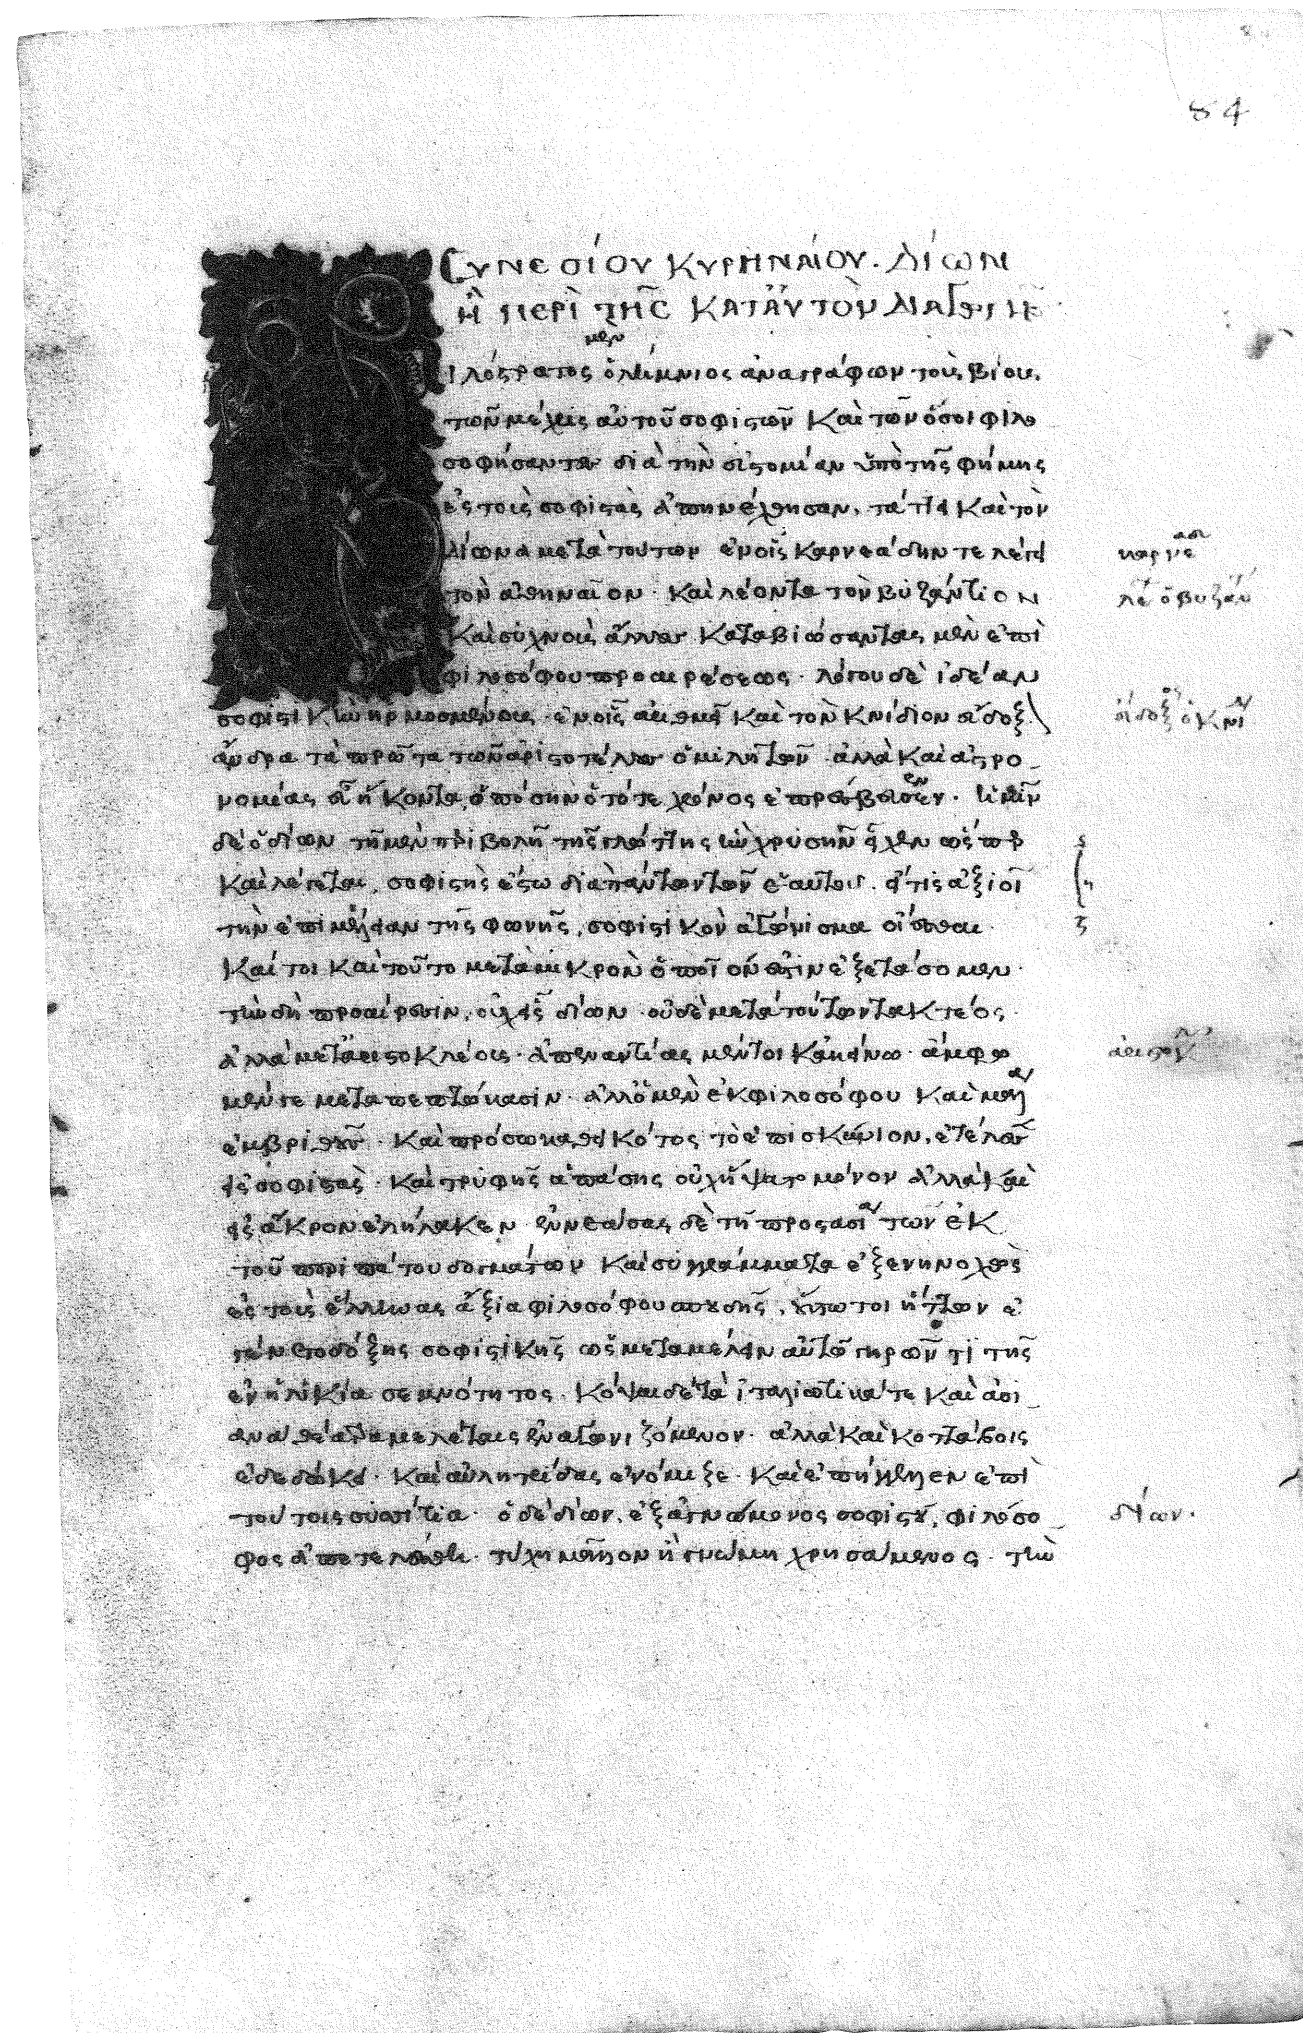 84
Συνεσίου Κυρηναίου. Δίων
ἢ περὶ τῆς κατ' αὐτὸν διαγωγῆς
μὲν
ιλόστρατος ὁ λήμνιος ἀναγράφων τοὺς βίους
τῶν μέχρις αὐτοῦ σοφιστῶν καὶ τῶν ὅσοι φιλο
σοφήσαντες διὰ τὴν εὐστομίαν ὑπὸ τῆς φήμης
ἐς τοὺς σοφιστὰς ἀπηνέχθησαν, τάττει καὶ τὸν
δίωνα μετὰ τούτων ἐν οἷς καρνεάδην τε λέγει
τὸν ἀθηναῖον. καὶ λέοντα τὸν βυζάντιον
καὶ συχνοὺς ἄλλους καταβιώσαντας μὲν ἐπὶ
φιλοσόφου προαιρέσεως. λόγου δὲ ἰδέαν
σοφιστικὴν ἡρμοσμένους. ἐν οἷς ἀριθμεῖ καὶ τὸν κνίδιον εὔδοξ
ἄνδρα τὰ πρῶτα τῶν ἀριστοτέλους ὁμιλητῶν. ἀλλὰ καὶ ἀστρο
νομίας εὖ ἥκοντα, ὁπόσην ὁ τότε χρόνος ἐπρέσβευεν. ἡμῖν
δὲ ὁ δίων τῇ μὲν περιβολῇ τῆς γλώττης ἣν χρυσῆν εἶχεν ὥσπερ
καὶ λέγεται, σοφιστὴς ἔστω διὰ πάντων τῶν ἑαυτοῦ. εἴ τις ἀξιοῖ
τὴν ἐπιμέλειαν τῆς φωνῆς, σοφιστικὸν ἀγώνισμα οἴεσθαι.
καίτοι καὶ τοῦτο μετὰ μικρὸν ὁποῖόν ἐστιν ἐξετάσομεν.
τὴν δὴ προαίρεσιν, οὐχ εἷς δίων. οὐδὲ μετὰ τούτων τακτέος.
ἀλλὰ μετ' ἀριστοκλέους. ἀπεναντίας μέντοι κἀκείνω. ἄμφω
μέν γε μεταπεπτώκασιν. ἀλλ' ὁ μὲν ἐκ φιλοσόφου καὶ μάλα
ἐμβριθοῦς. καὶ πρόσω καθεικότος τὸ ἐπισκύνιον, ἐτέλεσεν
εἰς σοφιστὰς. καὶ τρυφῆς ἁπάσης οὐχ ἥψατο μόνον ἀλλὰ καὶ
εἰς ἄκρον ἐλήλακεν. ἐννεάσας δὲ τῇ προστασίᾳ τῶν ἐκ
τοῦ περιπάτου δογμάτων καὶ συγγράμματα ἐξενηνοχὼς
ἐς τοὺς ἕλληνας ἄξια φιλοσόφου σπουδῆς, οὕτω τοι ἥττων ἐ
γένετο δόξης σοφιστικῆς ὡς μεταμέλειν αὐτῶ γηρῶντι τῆς
ἐν ἡλικίᾳ σεμνότητος. κόψαι δὲ τὰ ἰταλιωτικά τε καὶ ἀσι
ανὰ θέατρα μελέταις ἐναγωνιζόμενον. ἀλλὰ καὶ κοττάβοις
ἐδεδώκει. καὶ αὐλητρίδας ἐνόμιζε. καὶ ἐπήγγελλεν ἐπὶ
τούτοις συσσίτια. ὁ δὲ δίων, ἐξ ἀγνώμονος σοφιστοῦ, φιλόσο
φος ἀπετελέσθη. τύχῃ μᾶλλον ἢ γνώμῃ χρησάμενος. τὴν
καρνεαδ
λέ ὁ βυζάν
εὔδοξ ὁ κνί
ἀριστοκλ
δίων.